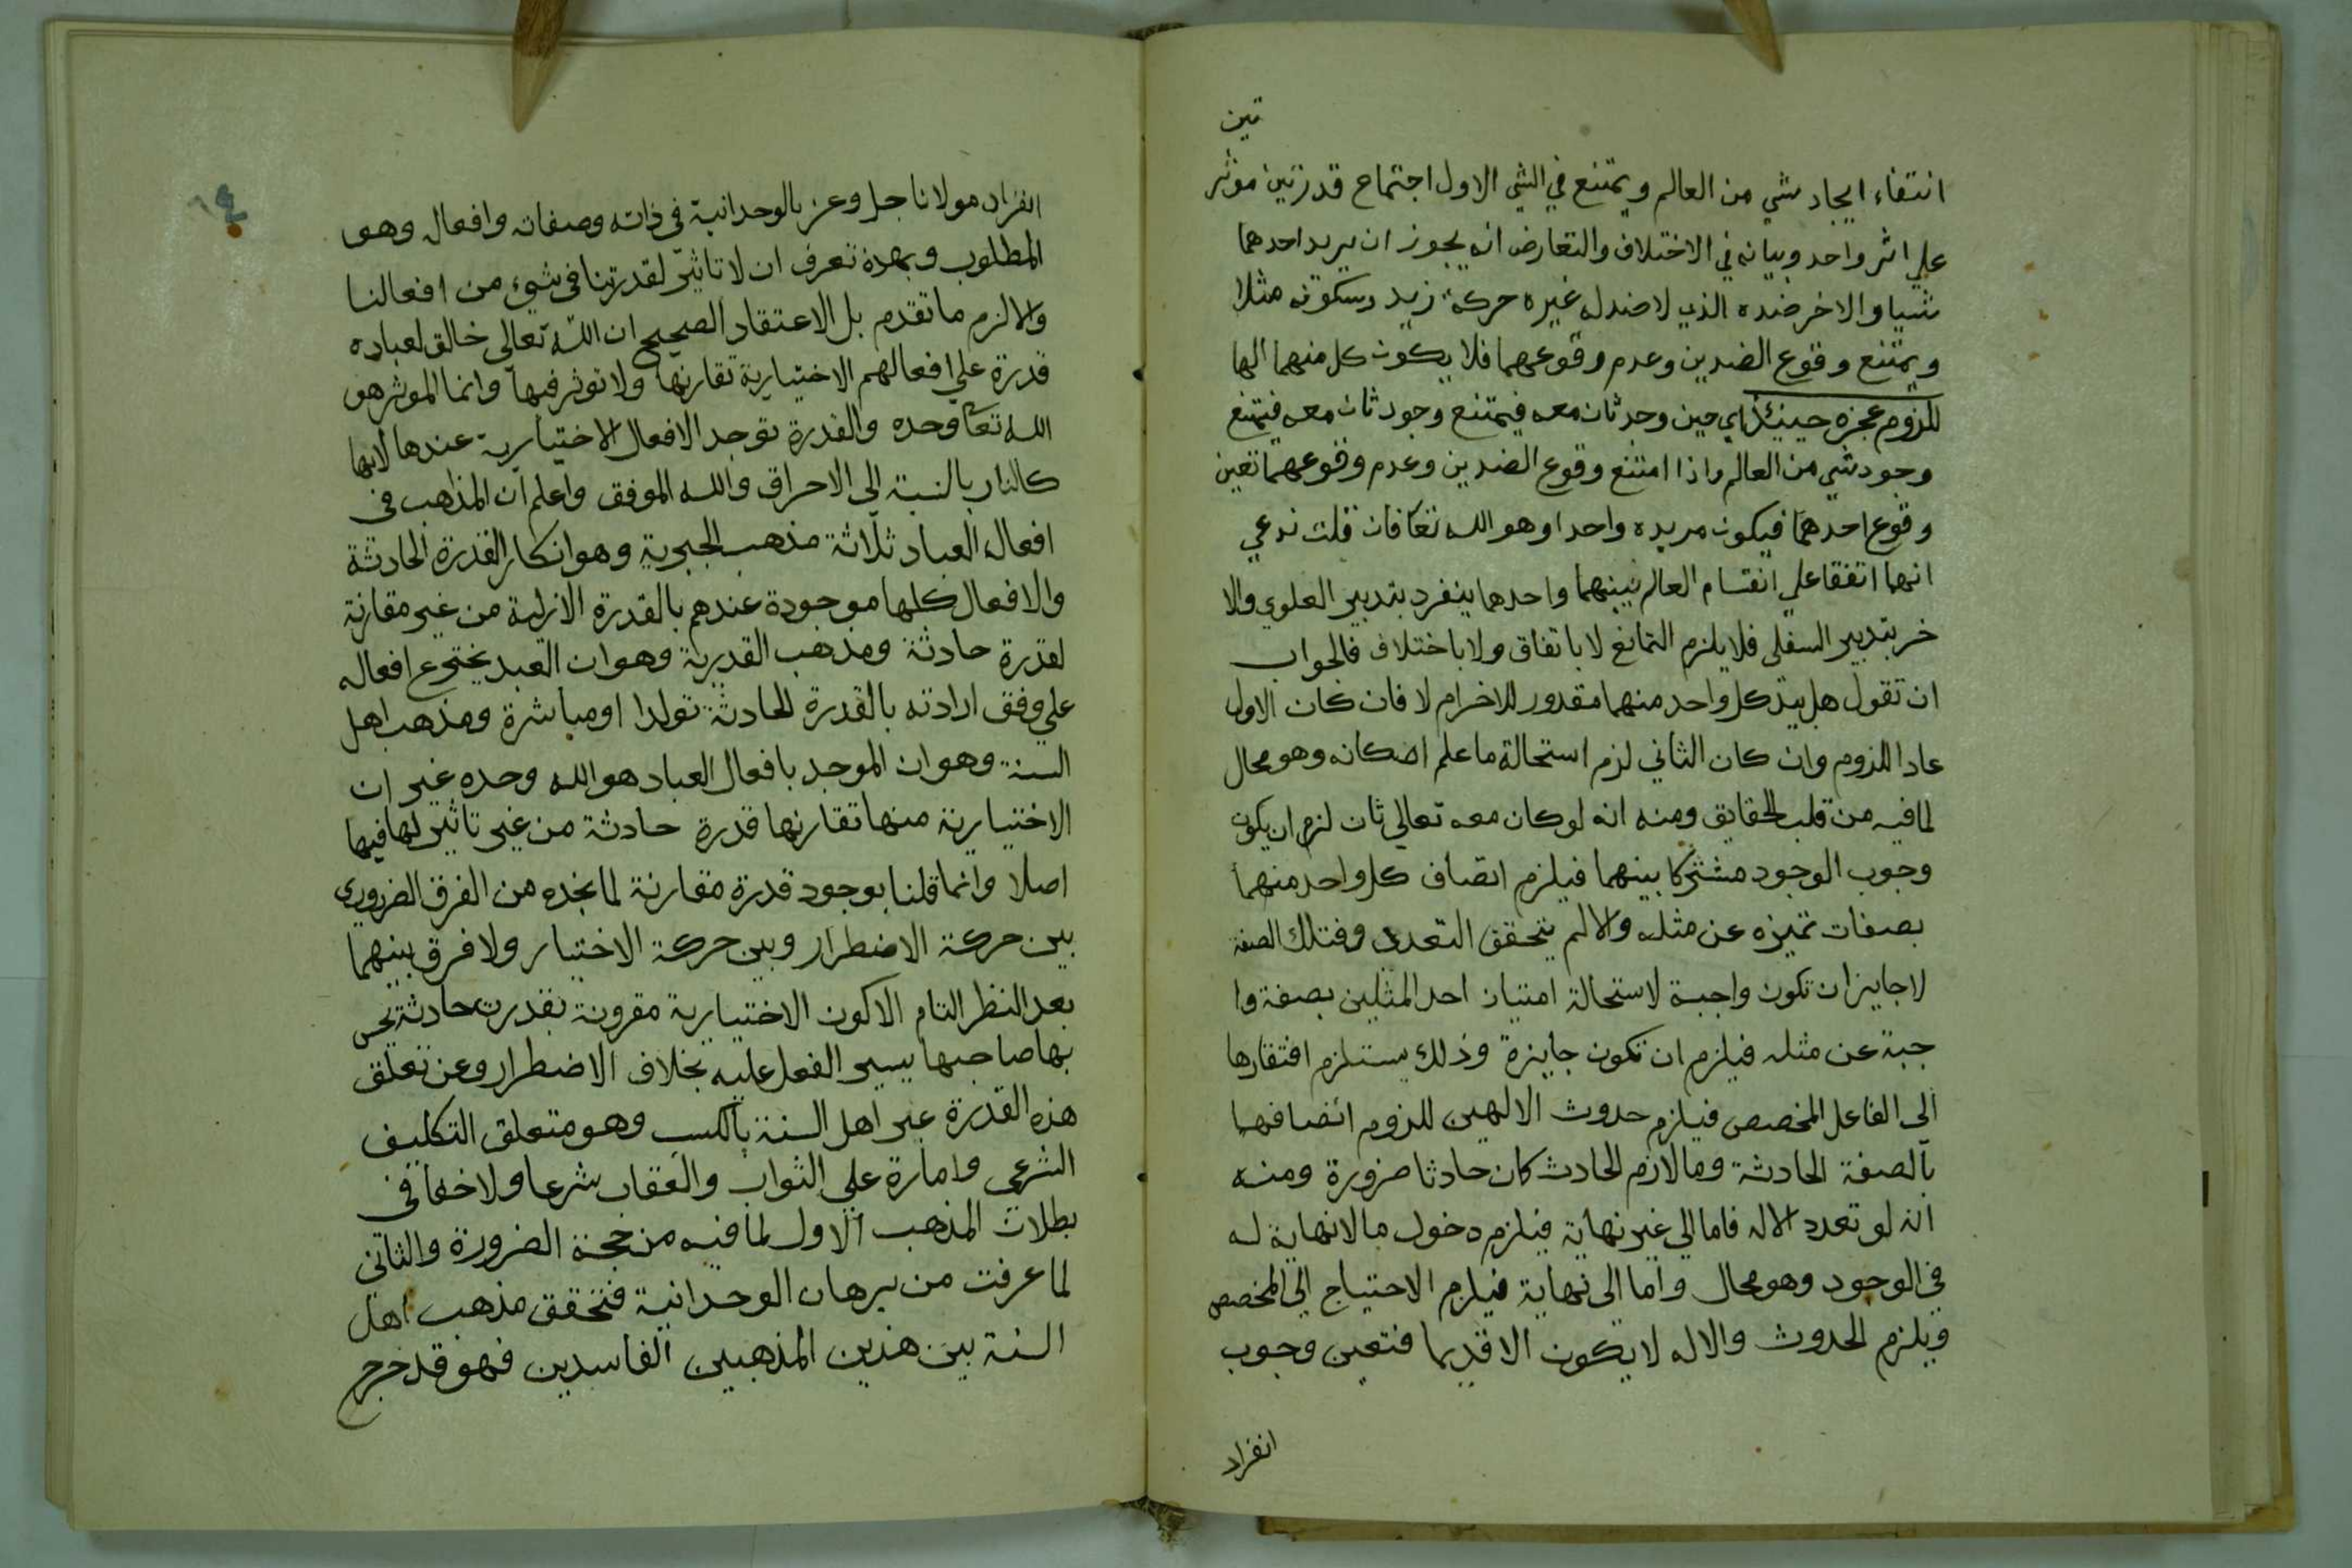 تين
انتفاء ايجاد شي من العالم ويمتنع في الشي الاول اجتماع قدرتين موثر
علي اثر واحد وبيانه في الاختلاف والتعارض انه يجوز ان يريد احدهما
شيا والاخر ضده الذي لا ضد له غيره حركة زيد وسكونه مثلا
ويمتنع وقوع الضدين وعدم وقوعهما فلا يكون كل منهما الها
للزوم عجزه حينئذ اي حين وجد ثان معه فيمتنع وجود ثان معه فيمتنع
وجود شي من العالم واذا امتنع وقوع الضدين وعدم وقوعهما تعين
وقوع احدهما فيكون مريده واحدا وهو الله تعا فان قلت ندعي
انهما اتفقا علي انقسام العالم بينهما واحدهما ينفرد بتدبير العلوي والا
خر بتدبير السفلي فلا يلزم التمانع لا باتفاق ولا باختلاف فالجواب
ان تقول هل بيد كل واحد منهما مقدور للاخر ام لا فان كان الاول
عاد اللزوم وان كان الثاني لزم استحالة ما علم امكانه وهو محال
لما فيه من قلب الحقايق ومنه انه لو كان معه تعالي ثان لزم ان يكون
وجوب الوجود مشتركا بينهما فيلزم اتصاف كل واحد منهما
بصفات تميزه عن مثله والا لم يتحقق التعدد وفتلك الصفة
لا جايز ان تكون واجبة لاستحالة امتياز احد المثلين بصفة وا
جبة عن مثله فيلزم ان تكون جايزة وذلك يستلزم افتقارها
الي الفاعل المخصص فيلزم حدوث الالهين للزوم اتصافهما
بالصفة الحادثة وما لازم الحادث كان حادثا ضرورة ومنه
انه لو تعدد الاله فاما الي غير نهاية فيلزم دخول ما لا نهاية له
في الوجود وهو محال واما الي نهاية فيلزم الاحتياج الي المخصص
ويلزم الحدوث والاله لا يكون الا قديما فتعين وجوب
انفراد
انفراد مولانا جل وعز بالوحدانية في ذاته وصفاته وافعاله وهو
المطلوب وبهذه تعرف ان لا تاثير لقدرتنا في شيء من افعالنا
والا لزم ما تقدم بل الاعتقاد الصحيح ان الله تعالي خالق لعباده
قدرة علي افعالهم الاختيارية تقارنها ولا توثر فيها وانما الموثر هو
الله تعا وحده والقدرة توجد الافعال الاختيارية عندها لابها
كالنار بالنسبة الي الاحراق والله الموفق واعلم ان المذاهب في
افعال العباد ثلاثة مذهب الجبرية وهو انكار القدرة الحادثة
والافعال كلها موجودة عندهم بالقدرة الازلية من غير مقارنة
لقدرة حادثة ومذهب القدرية وهو ان العبد يخترع افعاله
علي وفق ارادته بالقدرة الحادثة تولدا او مباشرة ومذهب اهل
السنة وهو ان الموجد بافعال العباد هو الله وحده غير ان
الاختيارية منها تقارنها قدرة حادثة من غير تاثير لها فيها
اصلا وانما قلنا بوجود قدرة مقارنة لما نجده من الفرق الضروري
بين حركة الاضطرار وبين حركة الاختيار ولا فرق بينهما
بعد النظر التام الا كون الاختيارية مقرونة بقدرت حادثة يحس
بها صاحبها بيسير الفعل عليه بخلاف الاضطرار وعن تعلق
هذه القدرة عبر اهل السنة بالكسب وهو متعلق التكليف
الشرعي وامارة علي الثواب والعقاب شرعا ولا خفا في
بطلان المذهب الاول لما فيه من حجة الضرورة والثاني
لما عرفت من برهان الوحدانية فتحقق مذهب اهل
السنة بين هذين المذهبين الفاسدين فهو قد خرج